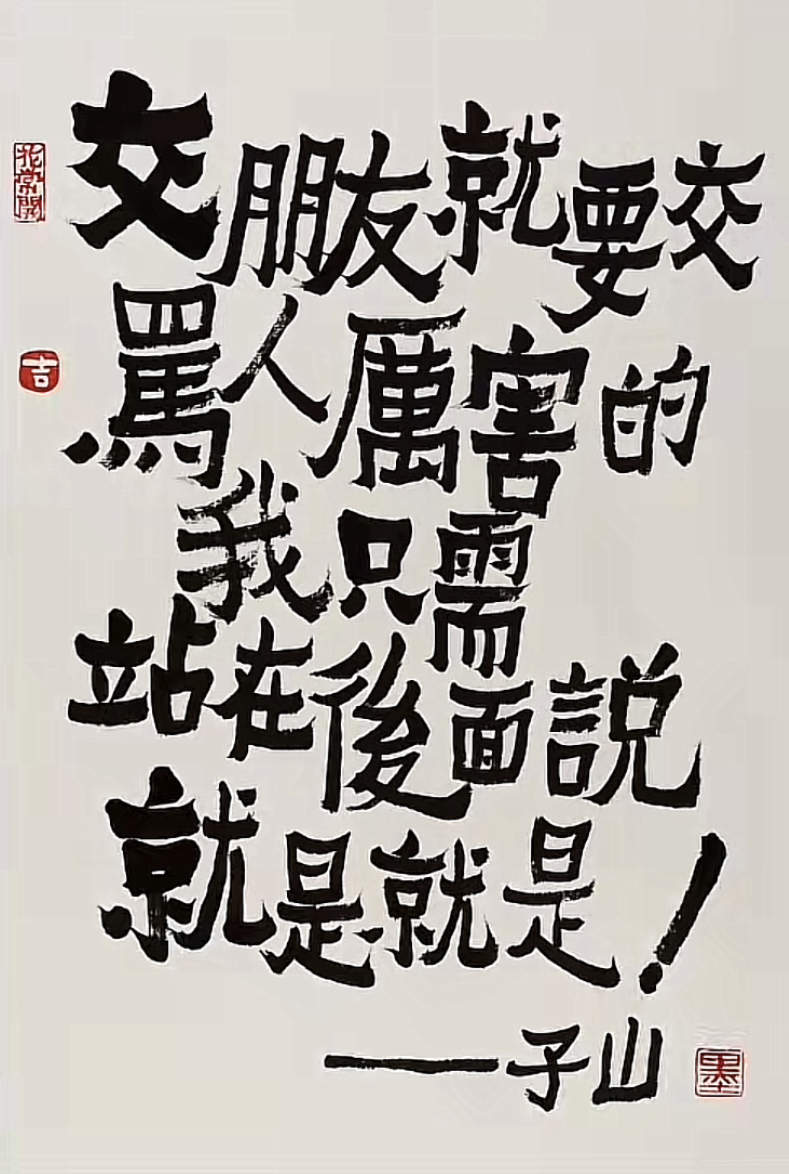 交朋友就要交
罵人厲害的
我只需
站在後面説
就是就是！
——子山
花常開
吉
墨